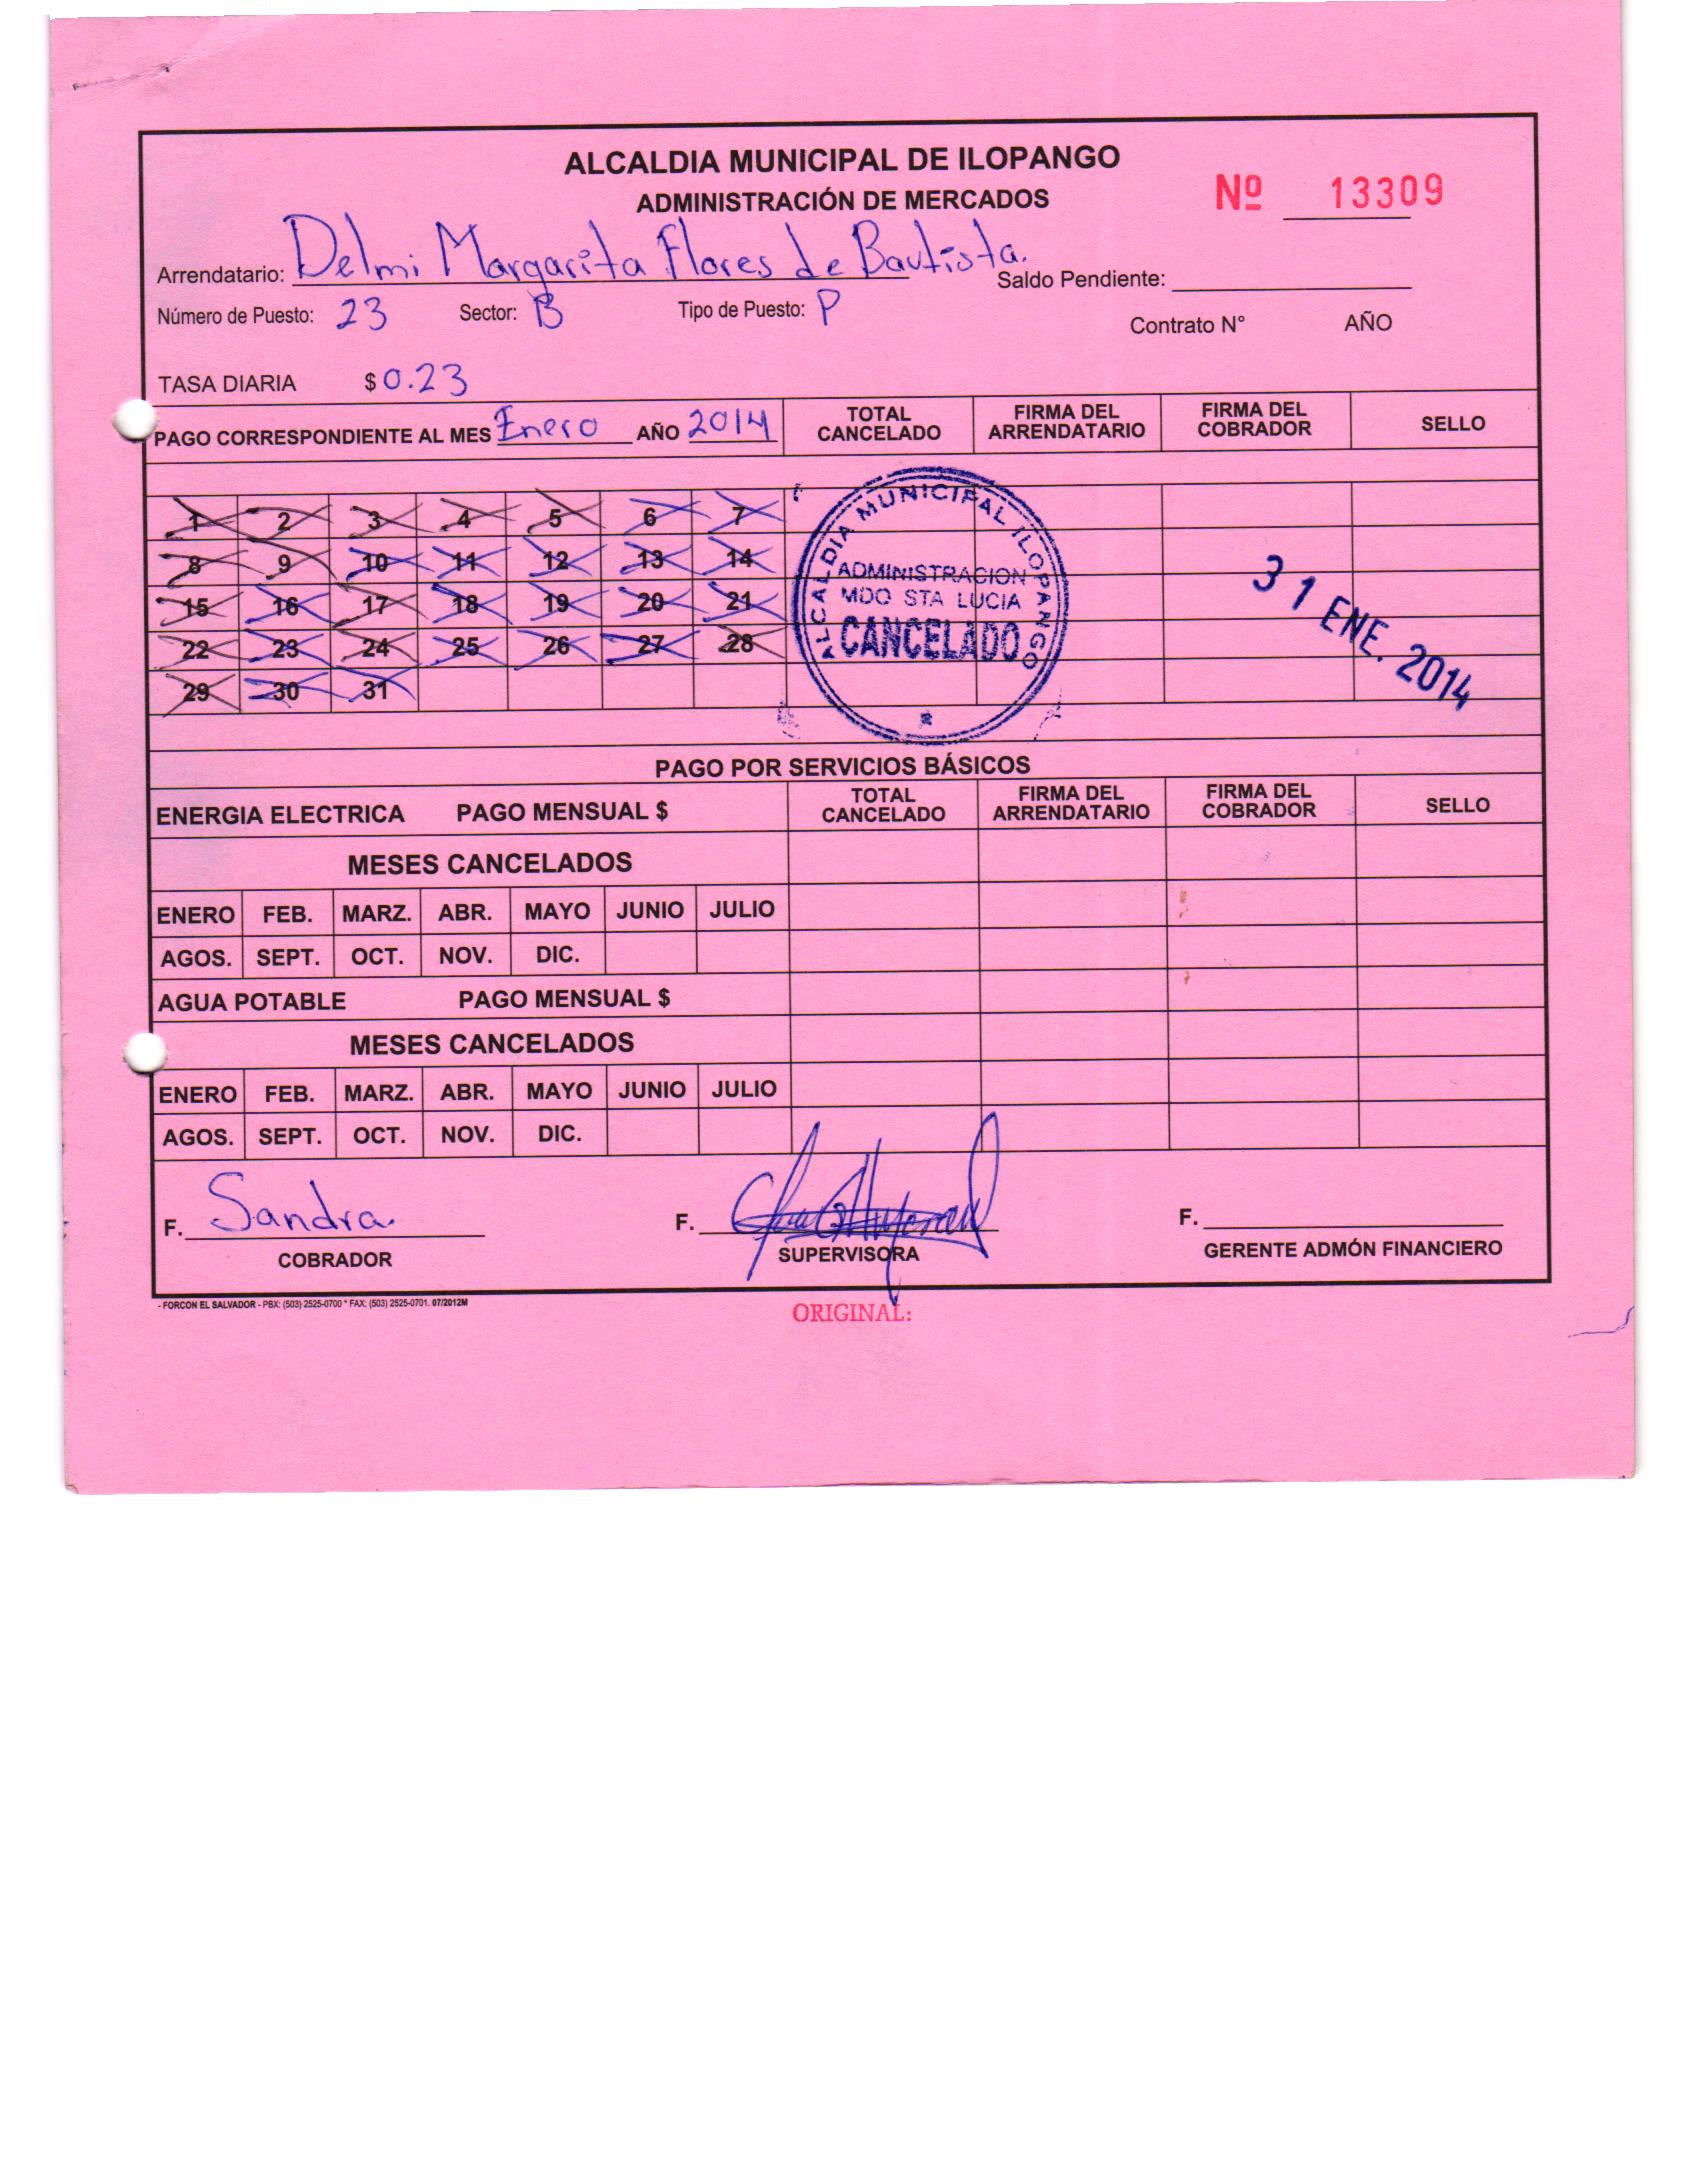 ALCALDIA MUNICIPAL DE ILOPANGO
ADMINISTRACIÓN DE MERCADOS
Nº 13309
Arrendatario: Delmi Margarita Flores de Bautista.
Saldo Pendiente:
Número de Puesto: 23 Sector: B Tipo de Puesto: P
Contrato N° AÑO
TASA DIARIA $ 0.23
PAGO CORRESPONDIENTE AL MES Enero AÑO 2014 TOTAL CANCELADO FIRMA DEL ARRENDATARIO FIRMA DEL COBRADOR SELLO
1 2 3 4 5 6 7
8 9 10 11 12 13 14
15 16 17 18 19 20 21
22 23 24 25 26 27 28
29 30 31
ALCALDIA MUNICIPAL ILOPANGO
ADMINISTRACION
MDO STA LUCIA
CANCELADO
31 ENE. 2014
PAGO POR SERVICIOS BÁSICOS
ENERGIA ELECTRICA PAGO MENSUAL $ TOTAL CANCELADO FIRMA DEL ARRENDATARIO FIRMA DEL COBRADOR SELLO
MESES CANCELADOS
ENERO FEB. MARZ. ABR. MAYO JUNIO JULIO
AGOS. SEPT. OCT. NOV. DIC.
AGUA POTABLE PAGO MENSUAL $
MESES CANCELADOS
ENERO FEB. MARZ. ABR. MAYO JUNIO JULIO
AGOS. SEPT. OCT. NOV. DIC.
F. Sandra. F. F.
COBRADOR SUPERVISORA GERENTE ADMÓN FINANCIERO
- FORCON EL SALVADOR - PBX: (503) 2525-0700 * FAX: (503) 2525-0701. 07/2012M
ORIGINAL: